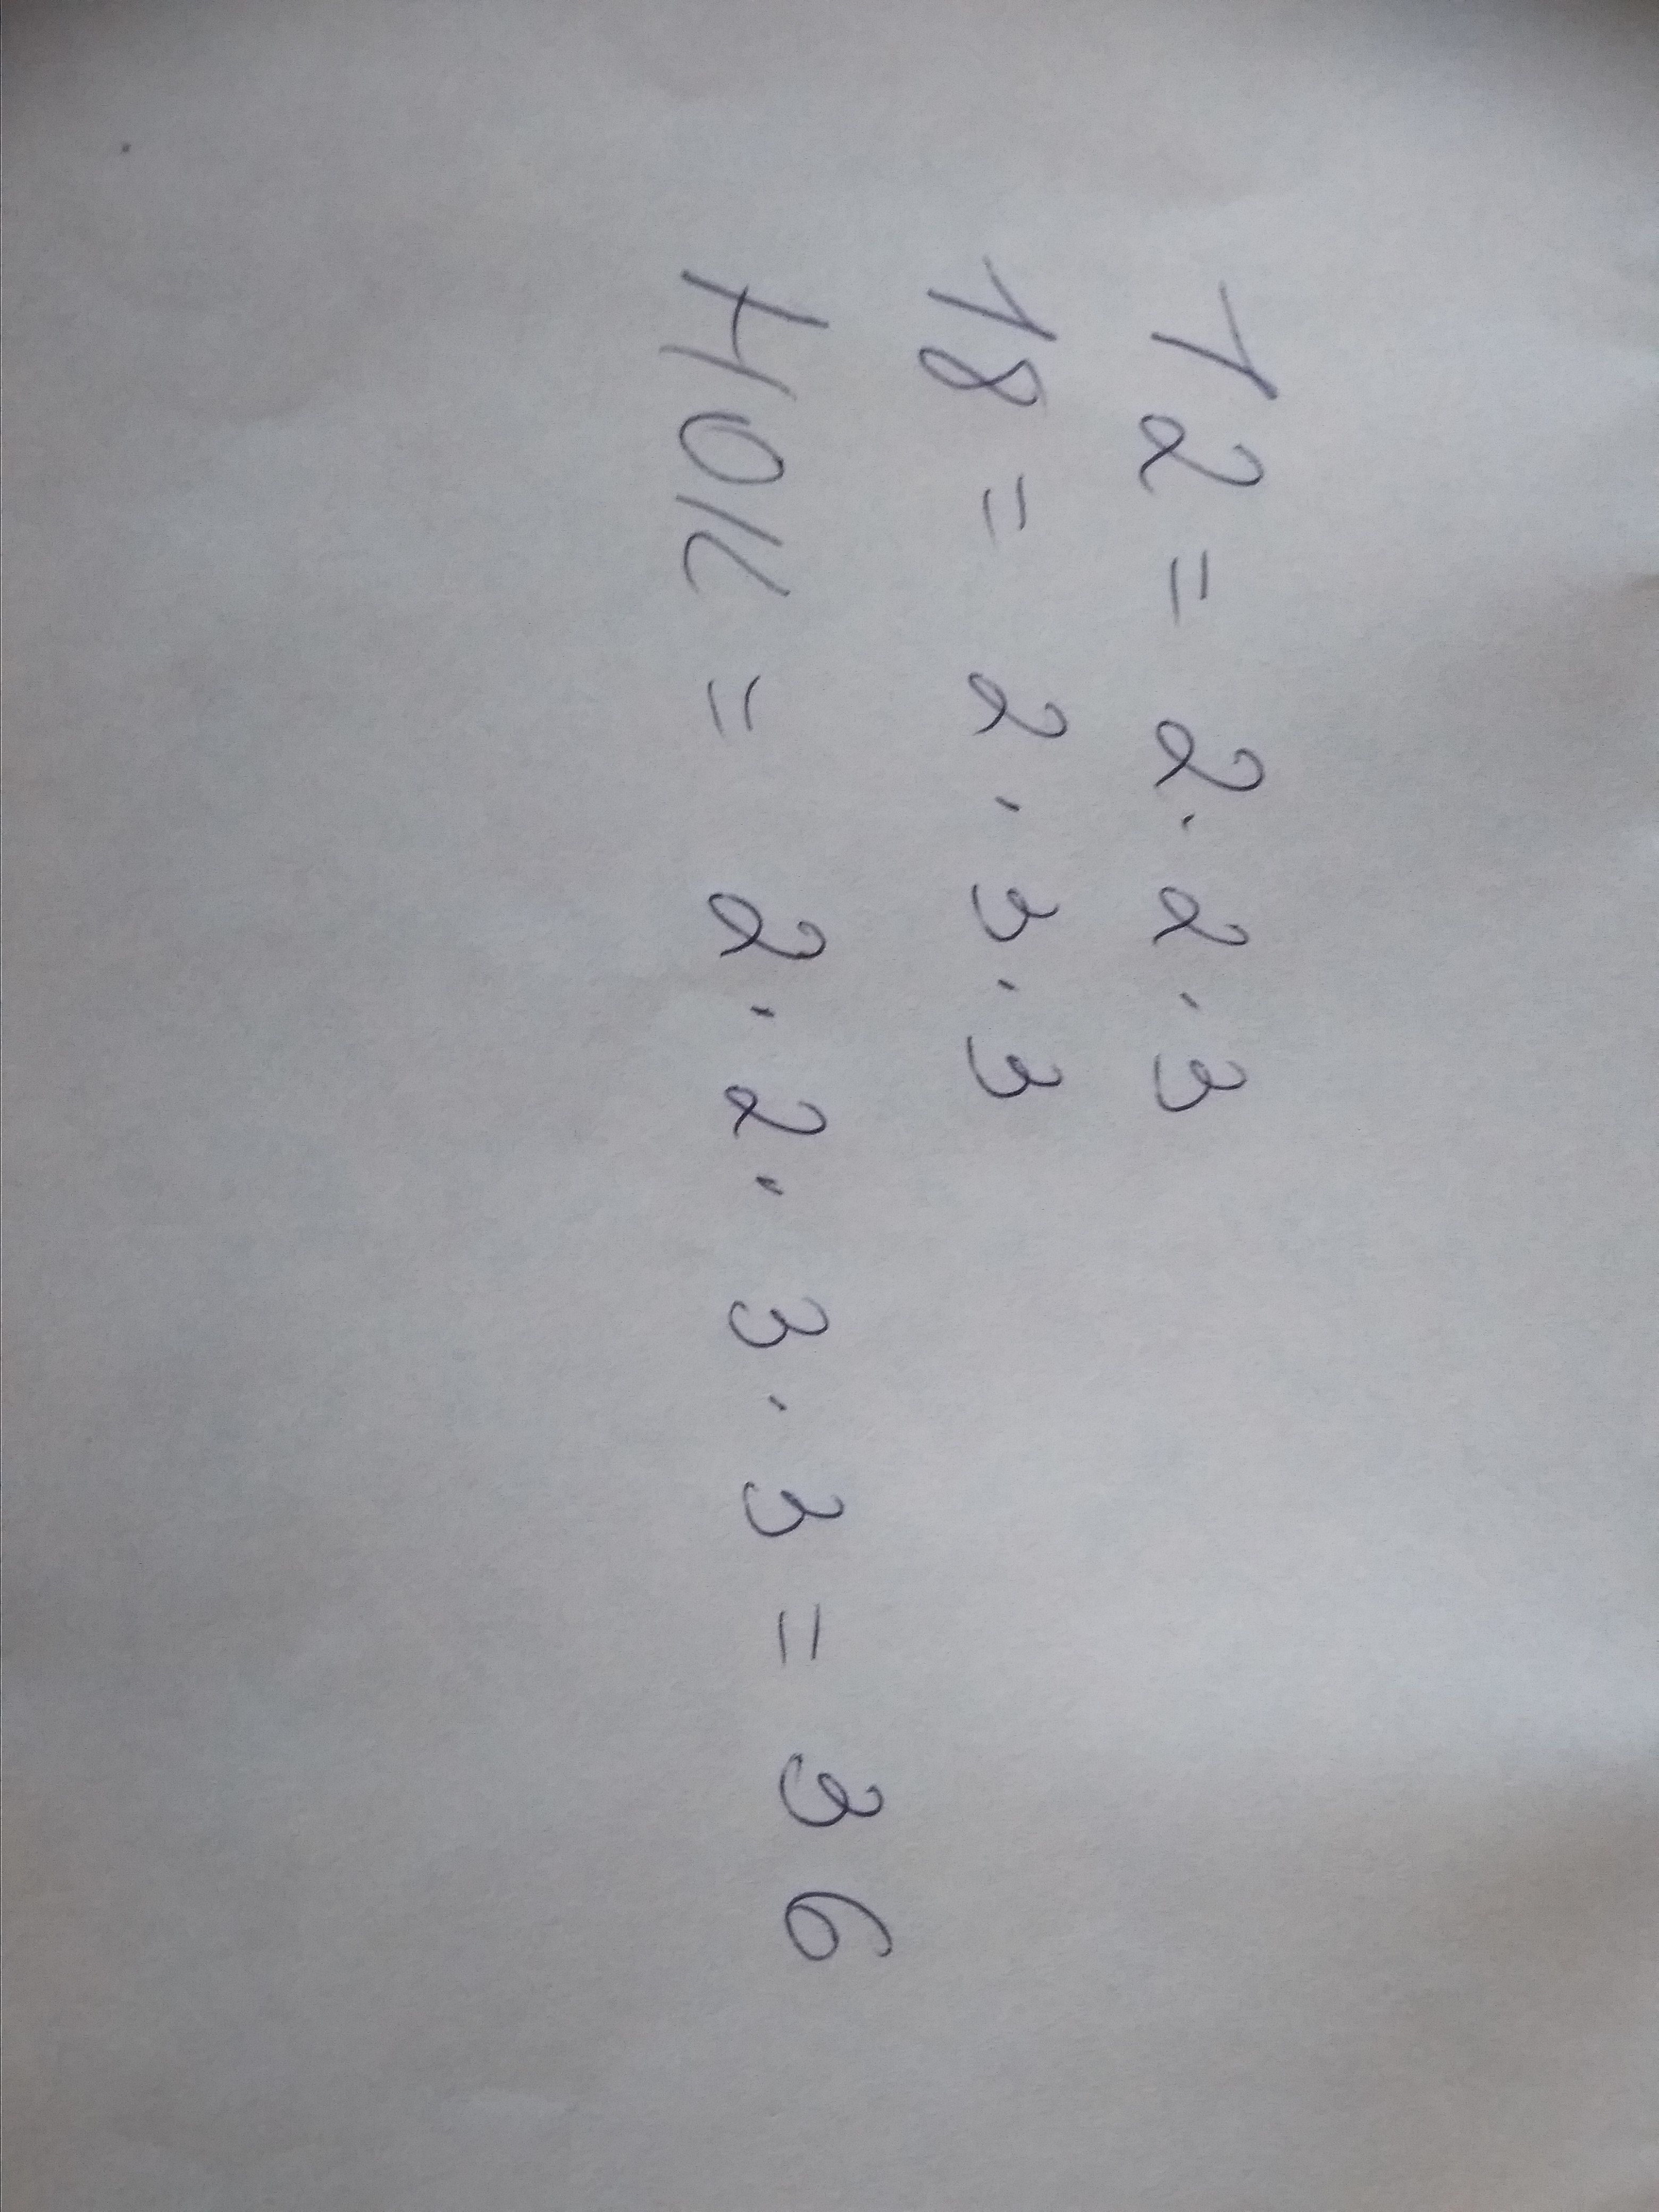 12 = 2 · 2 · 3
18 = 2 · 3 · 3
НОК = 2 · 2 · 3 · 3 = 36